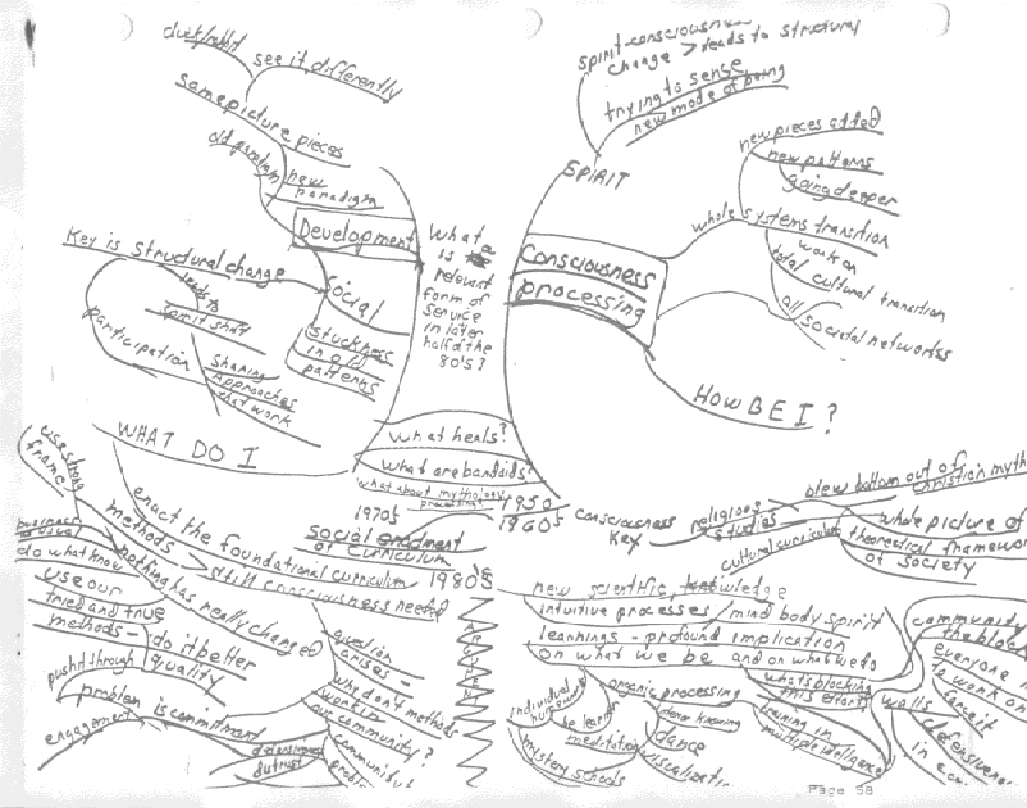 duck/rabbit
see it differently
same picture pieces
old paradigm
new
paradigm
Development
Key is structural change
leads to
spirit shift
participation
sharing
approaches
that work
social
stuckness
in old
patterns
What
is
relevant
form of
service
in later
half of the
80's?
spirit-consciousness
change > leads to structural
trying to sense
new mode of being
SPIRIT
new pieces added
new patterns
going deeper
whole systems transition
work on
total cultural transition
all societal networks
Consciousness
processing
HOW BE I?
WHAT DO I
what heals?
what are bandaids?
what about mythology
use strong
frame
methods
enact the foundational curriculum
still consciousness needed
nothing has really changed
business
as usual
do what know
use our
tried and true
methods -
do it better
quality
push it through
problem is commitment
engagement
question
arises -
why don't methods
work in
our community?
community &
1970s
social
of curriculum
1980's
1950
1960s
consciousness
key
religious
studies
cultural curriculum
blew bottom out of
Christian myth
whole picture of
theoretical framework
of society
new scientific knowledge
intuitive processes / mind body spirit
learnings - profound implication
on what we be and on what we do
what's blocking
this effort
individual
be learn
mystery schools
organic processing
meditation
inner knowing
dance
training in
multiple intelligence
walls
community
the block
everyone
to work on
conceit
defensiveness
in
Page 58